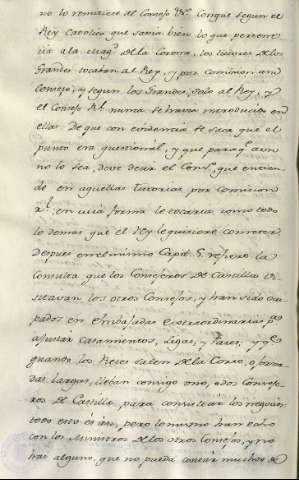 no lo remitiese al Consejo Rl. Conque segun el
Rey Catolico que sabia bien lo que pertene
cia a la mag.d de la Corona, las tutorias de los
Grandes tocaban al Rey, y por comision a su
Consejo, y segun los Grandes, solo al Rey, y
el Consejo Rl. nunca se havia introducido en
ellas. De que con evidencia se saca que el
punto era questionable, y que para q.e aun
no lo sea, deve decir el Cons.o que entien
de en aquellas tutorias por comision
Rl. en cuia forma le tocaria como todo
lo demas que el Rey le quisiere cometer
Despues en el mismo Capit. 5. refiere la
Consulta que los Consejeros de Castilla Vi
sitavan los otros Consejos, y han sido ocu
pados en embajadas extraordinarias p.a
ajustar casamientos, Ligas, y Pazes, y q.e
quando los Reies salen de la Corte, a jorna
das largas, llevan consigo uno, o dos Conseje
ros de Castilla, para consultar los negocios
todo esto es asi, pero lo mismo han echo
con los Ministros de los otros Consejos, y no
hai alguno, que no pueda contar muchos de